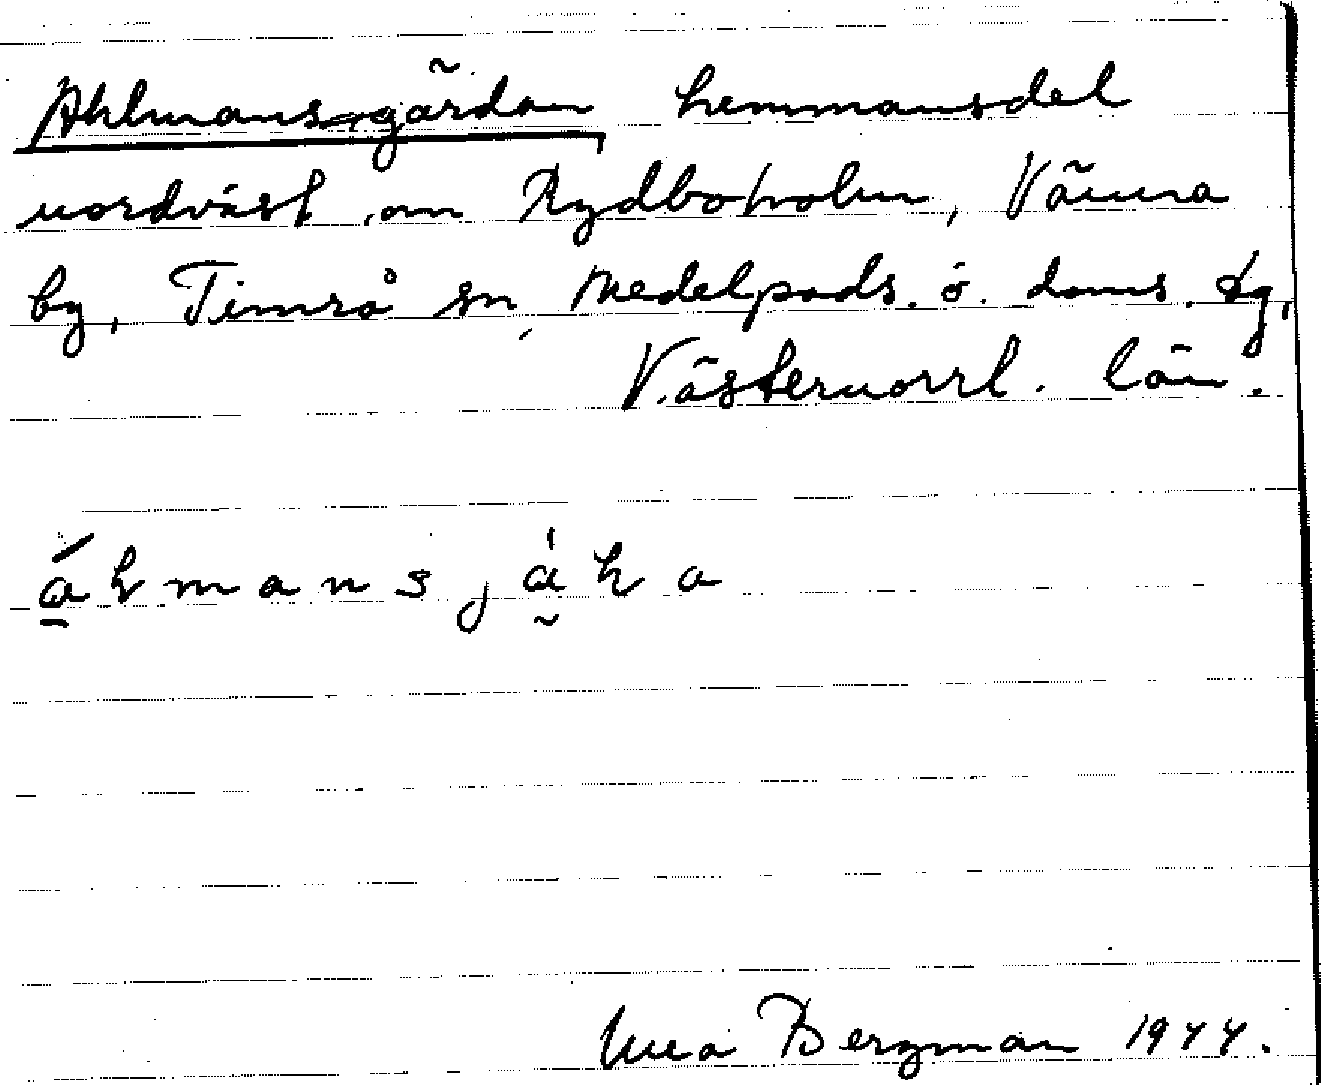 Ahlmansgärdan hemmansdel
nordväst om Rydboholm, Vänna
by, Timrå sn, Medelpads ö. doms. tg,
Västernorrl. län.
Bergman 1944.